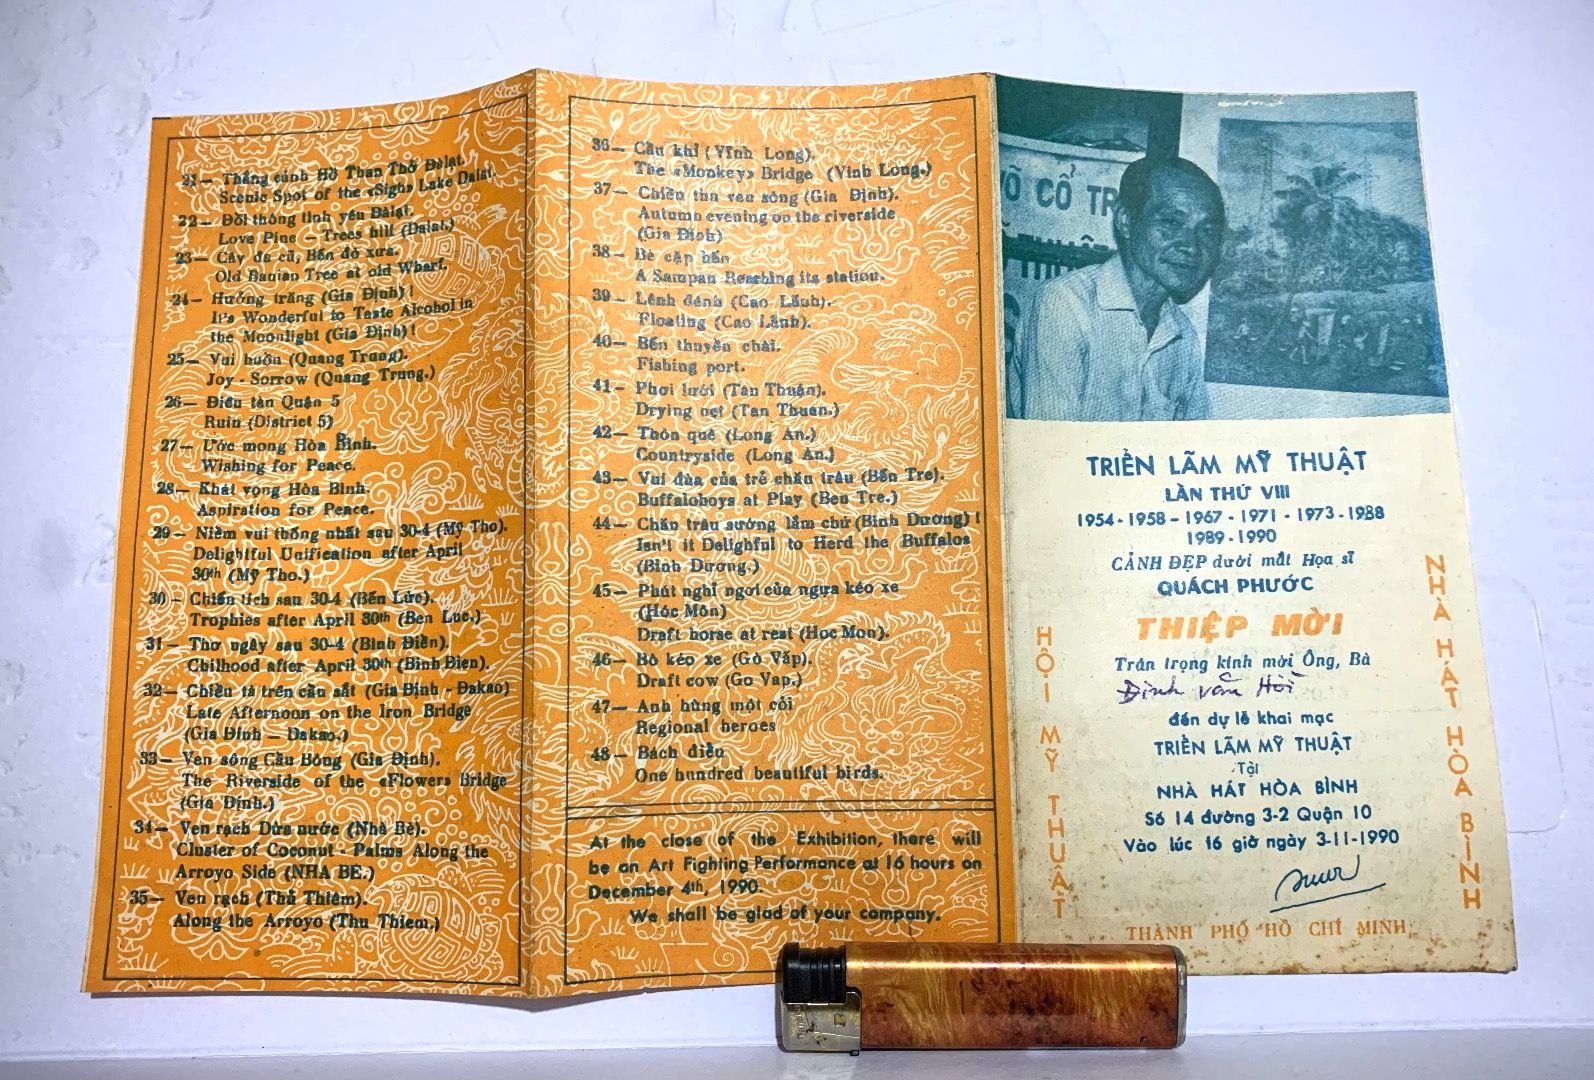 21— Thắng cảnh Hồ Than Thở Đàlạt.
Scenic Spot of the «Sigh» Lake Dalat.
22— Đồi thông tình yêu Đàlạt.
Love Pine — Trees hill (Dalat.)
23— Cây đa cũ, Bến đò xưa.
Old Banian Tree at old Wharf.
24— Hưởng trăng (Gia Định) !
It's Wonderful to Taste Alcohol in
the Moonlight (Gia Định) !
25— Vui buồn (Quang Trung).
Joy - Sorrow (Quang Trung.)
26— Điêu tàn Quận 5
Ruin (District 5)
27— Ước mong Hòa Bình.
Wishing for Peace.
28— Khát vọng Hòa Bình.
Aspiration for Peace.
29— Niềm vui thống nhất sau 30-4 (Mỹ Tho).
Delightful Unification after April
30th (Mỹ Tho.)
30— Chiến tích sau 30-4 (Bến Lức).
Trophies after April 30th (Ben Luc.)
31— Thơ ngây sau 30-4 (Bình Điền).
Chilhood after April 30th (Binh Bien).
32— Chiều tà trên cầu sắt (Gia Định - Đakao)
Late Afternoon on the Iron Bridge
(Gia Định — Dakao.)
33— Ven sông Cầu Bông (Gia Định).
The Riverside of the «Flower» Bridge
(Gia Định.)
34— Ven rạch Dừa nước (Nhà Bè).
Cluster of Coconut - Palms Along the
Arroyo Side (NHA BE.)
35— Ven rạch (Thủ Thiêm).
Along the Arroyo (Thu Thiem.)
36— Cầu khỉ (Vĩnh Long).
The «Monkey» Bridge (Vinh Long.)
37— Chiều thu ven sông (Gia Định).
Autumn evening on the riverside
(Gia Định)
38— Bè cập bến
A Sampan Reaching its station.
39— Lênh đênh (Cao Lãnh).
Floating (Cao Lãnh).
40— Bến thuyền chài.
Fishing port.
41— Phơi lưới (Tân Thuận).
Drying net (Tan Thuan.)
42— Thôn quê (Long An.)
Countryside (Long An.)
43— Vui đùa của trẻ chăn trâu (Bến Tre).
Buffaloboys at Play (Ben Tre.)
44— Chăn trâu sướng lắm chứ (Bình Dương) !
Isn't it Delighful to Herd the Buffalos
(Bình Dương.)
45— Phút nghỉ ngơi của ngựa kéo xe
(Hóc Môn)
Draft horse at rest (Hoc Mon).
46— Bò kéo xe (Gò Vấp).
Draft cow (Go Vap.)
47— Anh hùng một cõi
Regional heroes
48— Bách điểu
One hundred beautiful birds.
At the close of the Exhibition, there will
be an Art Fighting Performance at 16 hours on
December 4th, 1990.
We shall be glad of your company.
VÕ CỔ TR
TRIỂN LÃM MỸ THUẬT
LẦN THỨ VIII
1954 - 1958 - 1967 - 1971 - 1973 - 1988
1989 - 1990
CẢNH ĐẸP dưới mắt Họa sĩ
QUÁCH PHƯỚC
THIỆP MỜI
Trân trọng kính mời Ông, Bà
Đinh Văn Hời
đến dự lễ khai mạc
TRIỂN LÃM MỸ THUẬT
Tại
NHÀ HÁT HÒA BÌNH
Số 14 đường 3-2 Quận 10
Vào lúc 16 giờ ngày 3-11-1990
HỘI MỸ THUẬT
NHÀ HÁT HÒA BÌNH
THÀNH PHỐ HỒ CHÍ MINH